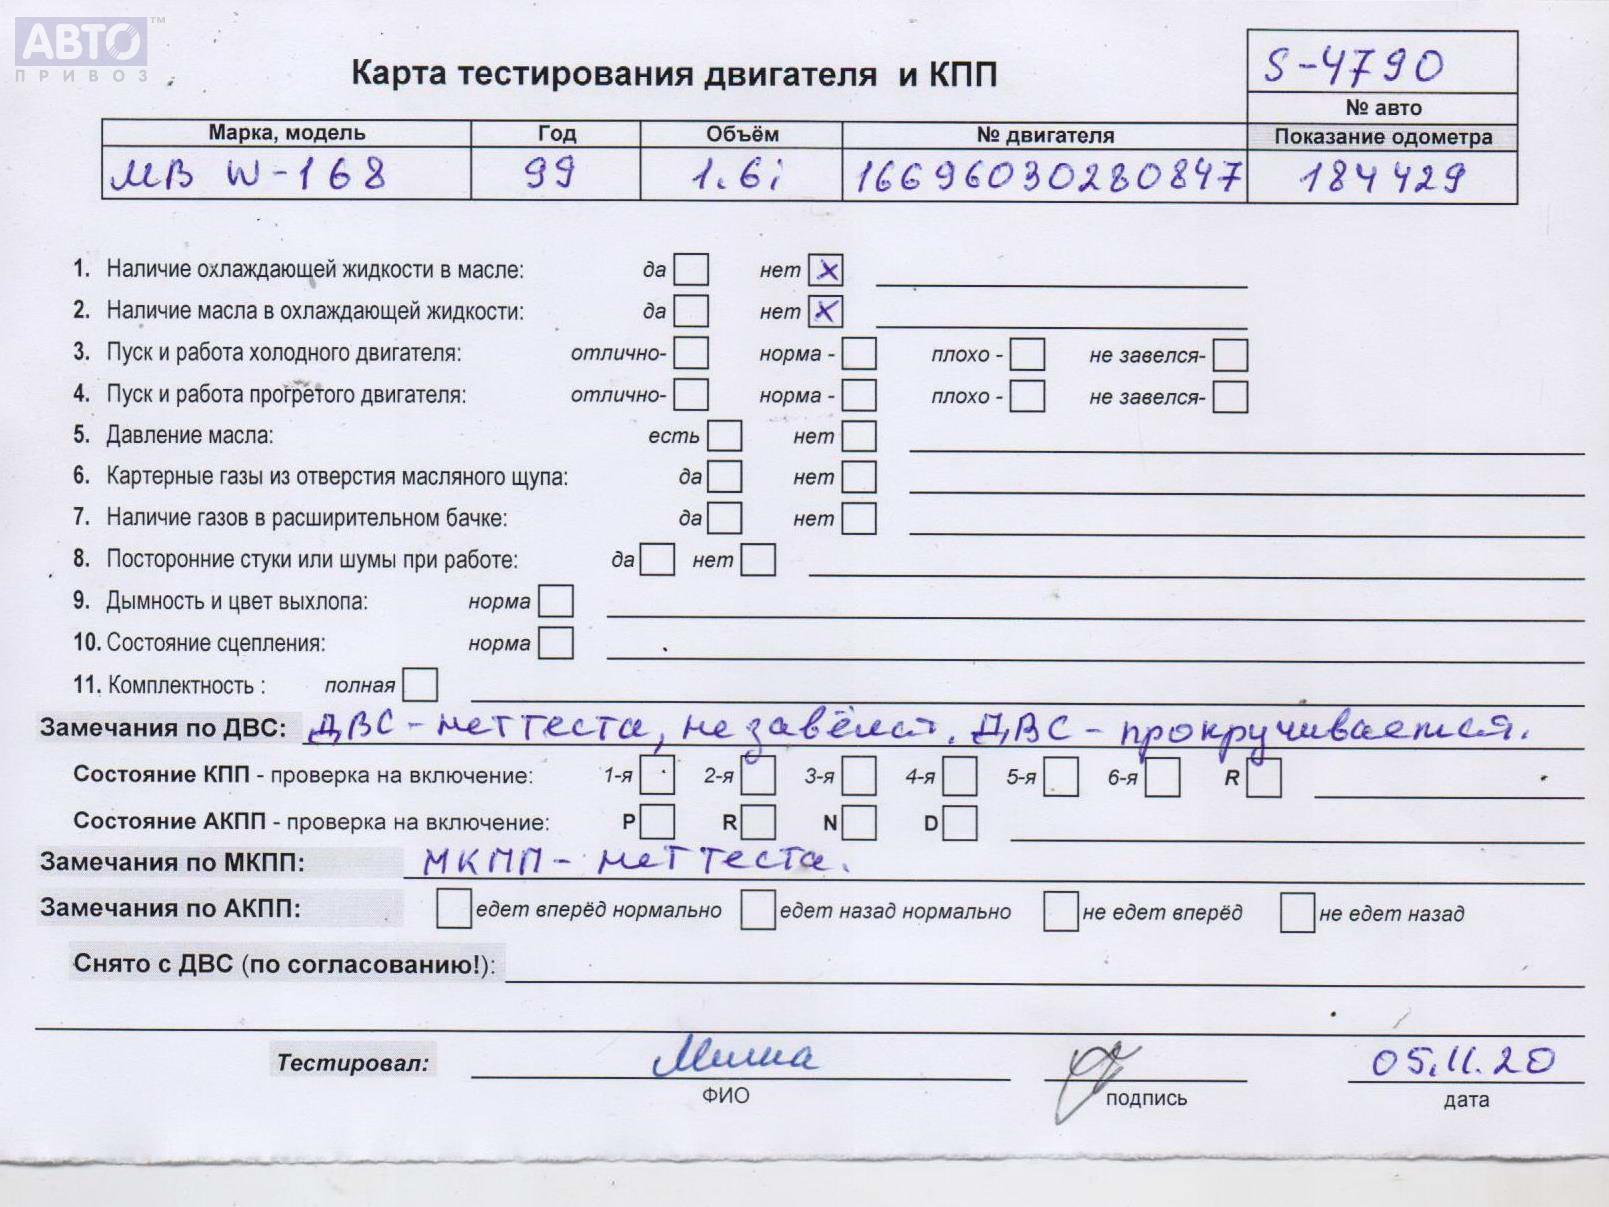 АВТО ™
ПРИВОЗ
Карта тестирования двигателя и КПП
S-4790
№ авто
Марка, модель Год Объём № двигателя Показание одометра
МВ W-168 99 1.6i 16696030280847 184429
1. Наличие охлаждающей жидкости в масле: да нет х
2. Наличие масла в охлаждающей жидкости: да нет х
3. Пуск и работа холодного двигателя: отлично- норма - плохо - не завелся-
4. Пуск и работа прогретого двигателя: отлично- норма - плохо - не завелся-
5. Давление масла: есть нет
6. Картерные газы из отверстия масляного щупа: да нет
7. Наличие газов в расширительном бачке: да нет
8. Посторонние стуки или шумы при работе: да нет
9. Дымность и цвет выхлопа: норма
10. Состояние сцепления: норма
11. Комплектность : полная
Замечания по ДВС: ДВС - нет теста, не завёлся. ДВС - прокручивается.
Состояние КПП - проверка на включение: 1-я 2-я 3-я 4-я 5-я 6-я R
Состояние АКПП - проверка на включение: P R N D
Замечания по МКПП: МКПП - нет теста.
Замечания по АКПП: едет вперёд нормально едет назад нормально не едет вперёд не едет назад
Снято с ДВС (по согласованию!):
Тестировал: 05.11.20
ФИО подпись дата